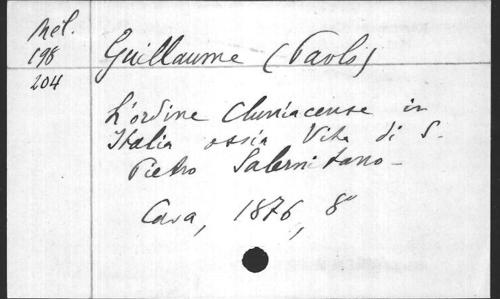 Mél.
198
204
Guillaume (Paolo)
L'ordine Cluniacense in
Italia ossia Vita di S.
Pietro Salernitano -
Cava, 1876, 8°